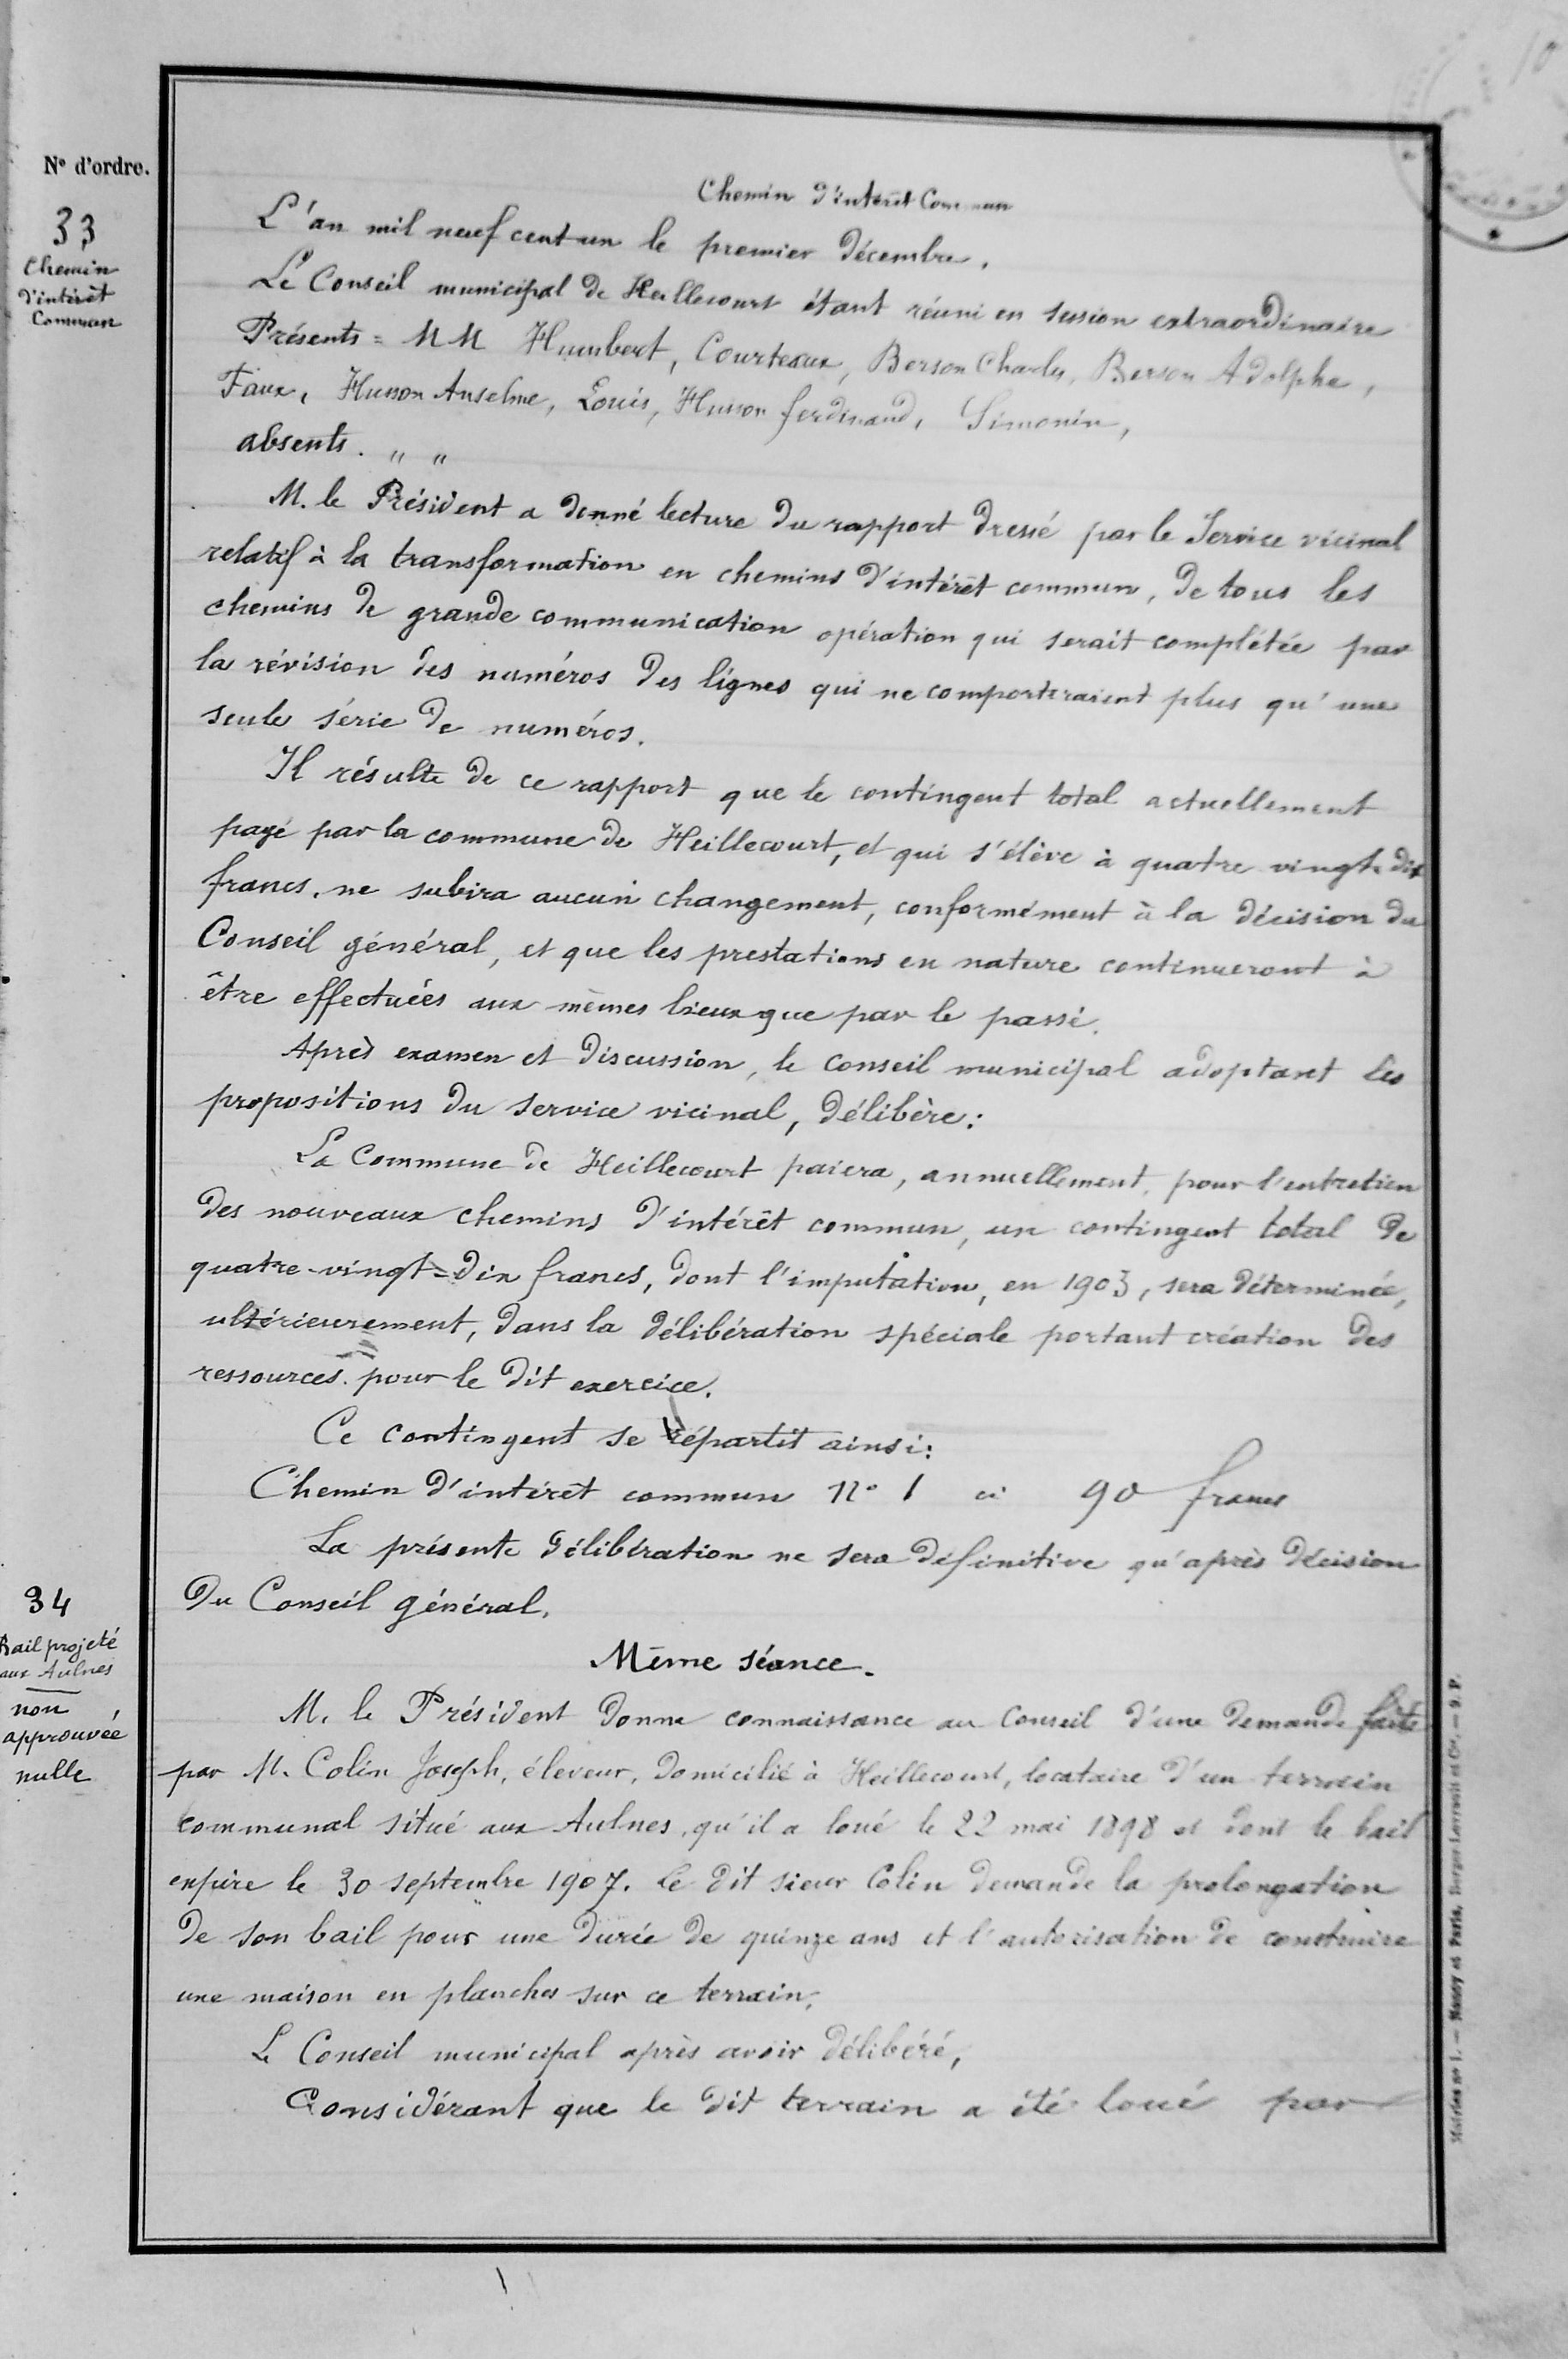 10
N° d'ordre.
33
Chemin
d'intérêt
Commun
Chemin d'intérêt Commun
L'an mil neuf cent un le premier décembre.
Le Conseil municipal de Heillecourt étant réuni en session extraordinaire
Présents = MM Humbert, Courteaux, Berson Charles, Berson Adolphe,
Faux, Husson Anselme, Louis, Husson ferdinand, Simonin,
absents. " "
M. le Président a donné lecture du rapport dressé par le Service vicinal
relatif à la transformation en chemins d'intérêt commun, de tous les
chemins de grande communication opération qui serait complétée par
la révision des numéros des lignes qui ne comporteraient plus qu'une
seule série de numéros.
Il résulte de ce rapport que le contingent total actuellement
payé par la commune de Heillecourt, et qui s'élève à quatre vingt-dix
francs, ne subira aucun changement, conformément à la décision du
Conseil général, et que les prestations en nature continueront à
être effectuées aux mêmes lieux que par le passé.
Après examen et discussion, le Conseil municipal adoptant les
propositions du service vicinal, délibère:
La Commune de Heillecourt paiera, annuellement, pour l'entretien
des nouveaux chemins d'intérêt commun, un contingent total de
quatre-vingt-dix francs, dont l'imputation, en 1903, sera déterminée,
ultérieurement, dans la délibération spéciale portant création des
ressources pour le dit exercice.
Ce contingent se répartit ainsi:
Chemin d'intérêt commun N° 1 ci 90 francs
La présente délibération ne sera définitive qu'après décision
du Conseil général.
34
Bail projeté
aux Aulnes
non
approuvée
nulle
Même séance.
M. le Président donne connaissance au Conseil d'une demande faite
par M. Colin Joseph, éleveur, domicilié à Heillecourt, locataire d'un terrain
communal situé aux Aulnes, qu'il a loué le 22 mai 1898 et dont le bail
expire le 30 septembre 1907. Le dit sieur Colin demande la prolongation
de son bail pour une durée de quinze ans et l'autorisation de construire
une maison en planches sur ce terrain.
Le Conseil municipal après avoir délibéré,
Considérant que le dit terrain a été loué par
Mairies n° 1. — Nancy et Paris, Berger-Levrault et Cie. — 9. P.